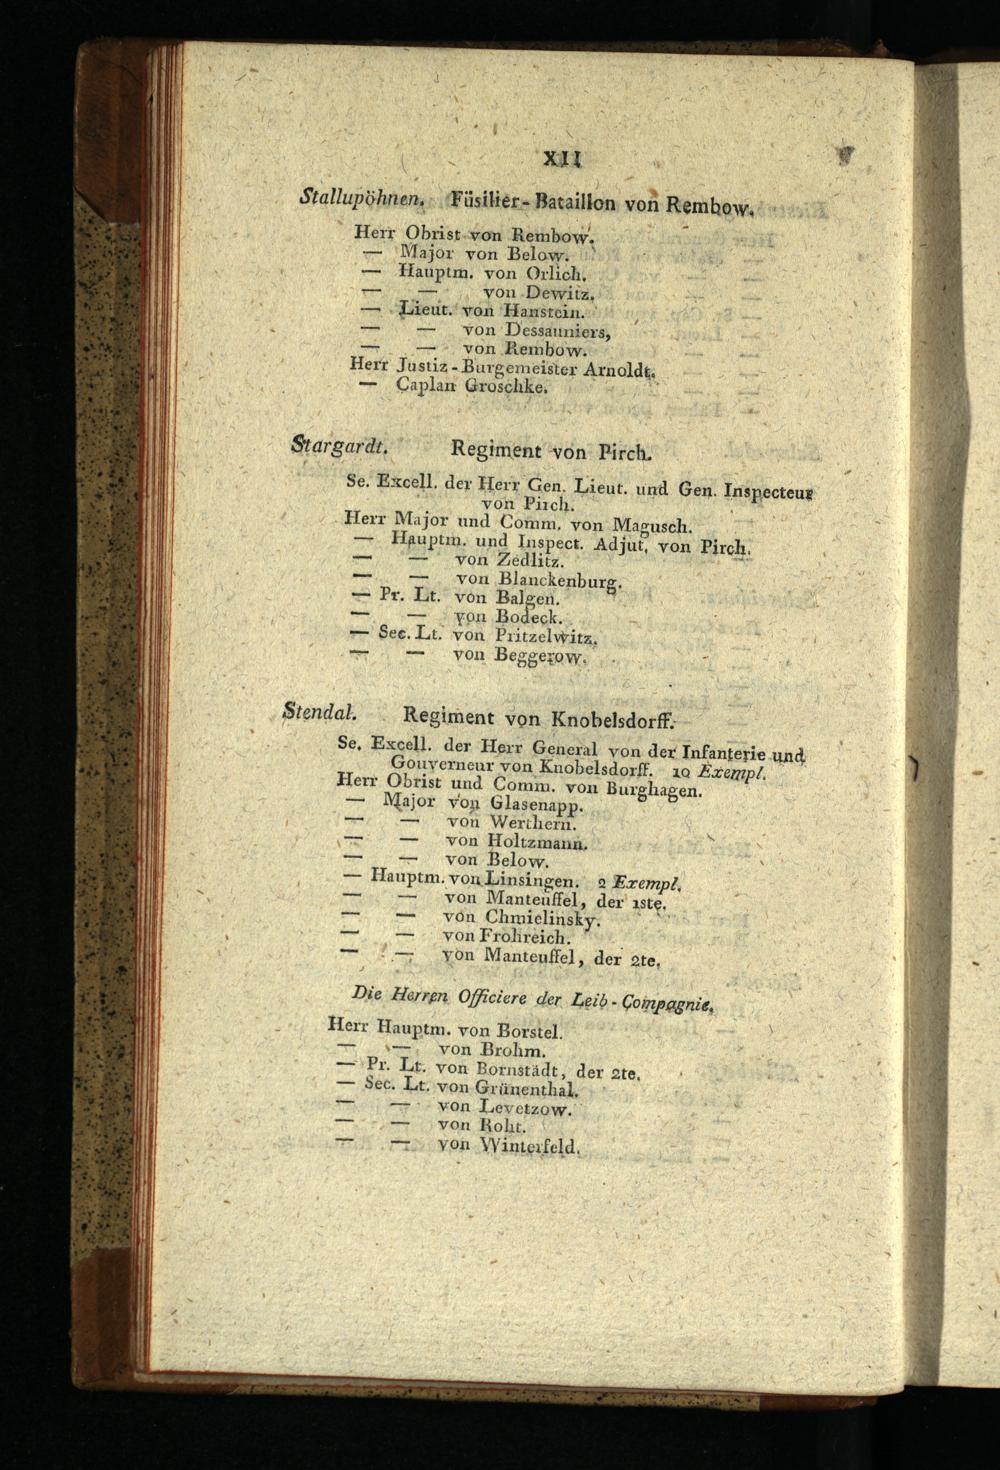 XII
Stallupöhnen. Füsilier-Bataillon von Rembow.
Herr Obrist von Rembow.
— Major von Below.
— Hauptm. von Orlich.
— — von Dewitz.
— Lieut. von Hanstein.
— — von Dessauniers,
— — von Rembow.
Herr Justiz-Burgemeister Arnoldt.
— Caplan Groschke.
Stargardt. Regiment von Pirch.
Se. Excell. der Herr Gen. Lieut. und Gen. Inspecteur
von Pirch.
Herr Major und Comm. von Magusch.
— Hauptm. und Inspect. Adjut. von Pirch.
— — von Zedlitz.
— — von Blanckenburg.
— Pr. Lt. von Balgen.
— — von Bodeck.
— Sec. Lt. von Pritzelwitz.
— — von Beggerow.
Stendal. Regiment von Knobelsdorff.
Se. Excell. der Herr General von der Infanterie und
Gouverneur von Knobelsdorff. 10 Exempl.
Herr Obrist und Comm. von Burghagen.
— Major von Glasenapp.
— — von Werthern.
— — von Holtzmann.
— — von Below.
— Hauptm. von Linsingen. 2 Exempl.
— — von Manteuffel, der 1ste.
— — von Chmielinsky.
— — von Frohreich.
— — von Manteuffel, der 2te.
Die Herren Officiere der Leib-Compagnie.
Herr Hauptm. von Borstel.
— — von Brohm.
— Pr. Lt. von Bornstädt, der 2te.
— Sec. Lt. von Grünenthal.
— — von Levetzow.
— — von Roht.
— — von Winterfeld.